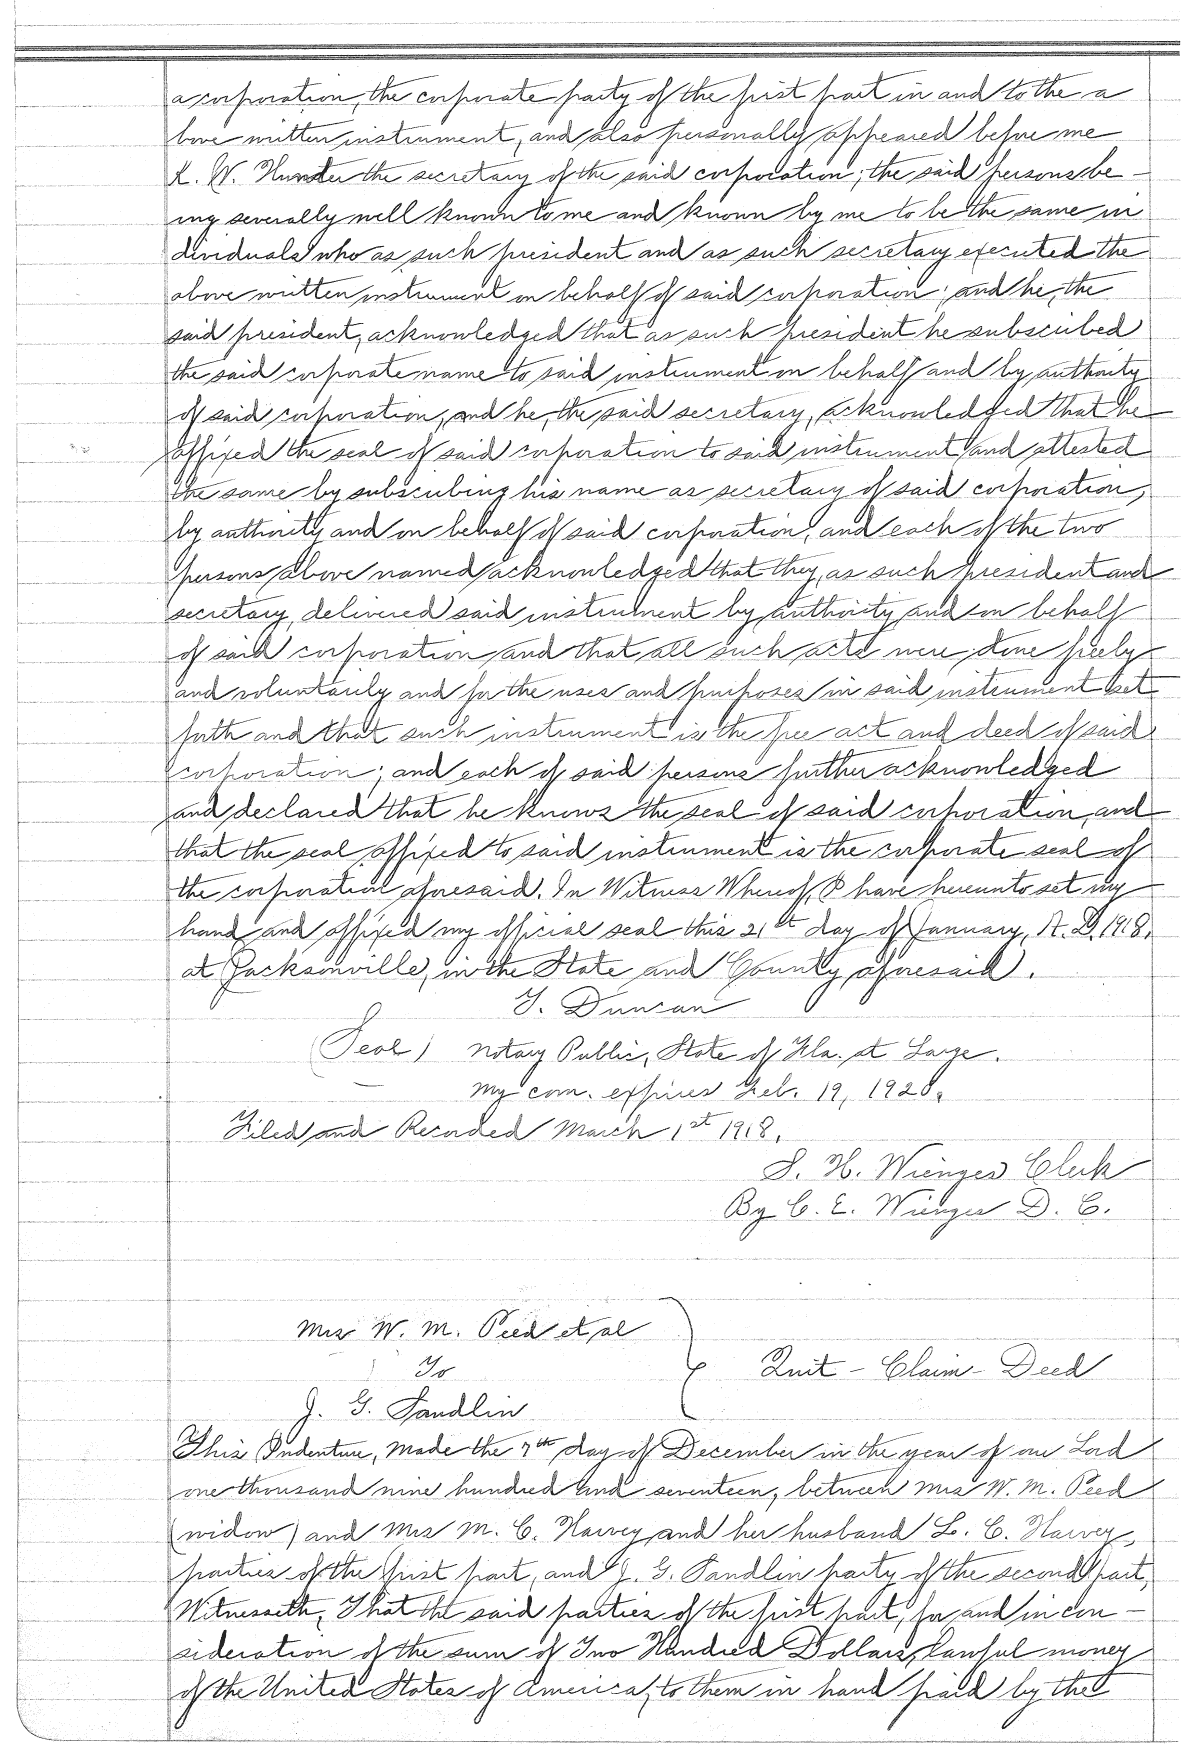 a corporation, the corporate party of the first part in and to the a
bove written instrument, and also personally appeared before me
W. the secretary of the said corporation; the said persons be-
ing severally well known to me and known by me to be the same in
dividuals who as such president and as such secretary executed the
above written instrument on behalf of said corporation; and he, the
said president, acknowledged that as such president he subscribed
the said corporate name to said instrument on behalf and by authority
of said corporation, and he, the said secretary, acknowledged that he
affixed the seal of said corporation to said instrument and attested
the same by subscribing his name as secretary of said corporation,
by authority and on behalf of said corporation, and each of the two
persons above named acknowledged that they, as such president and
secretary, delivered said instrument by authority and on behalf
of said corporation and that all such acts were done freely
and voluntarily and for the uses and purposes in said instrument set
forth and that such instrument is the free act and deed of said
corporation; and each of said persons further acknowledged
and declared that he knows the seal of said corporation, and
that the seal affixed to said instrument is the corporate seal of
the corporation aforesaid. In Witness Whereof, I have hereunto set my
hand and affixed my official seal this 21st day of January, A. D. 1918,
at Jacksonville, in the State and County aforesaid.
Duncan
(Seal) Notary Public, State of Fla. at Large.
My com. expires Feb. 19, 1920.
Filed and Recorded March 1st 1918.
S. H. Wienges Clerk
By C. E. Wienges D. C.
Mrs W. M. Peed et al
To
Quit-Claim-Deed
J. G. Sandlin
This Indenture, Made the 7th day of December in the year of our Lord
one thousand nine hundred and seventeen, between Mrs W. M. Peed
(widow) and Mrs M. C. Harvey and her husband L. C. Harvey,
parties of the first part, and J. G. Sandlin party of the second part,
Witnesseth, That the said parties of the first part, for and in con-
sideration of the sum of Two Hundred Dollars, lawful money
of the United States of America, to them in hand paid by the